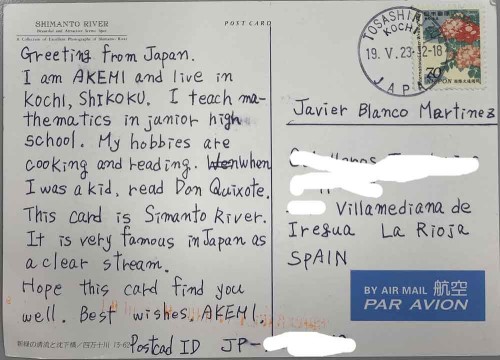 SHIMANTO RIVER
Beautiful and Attractive Scenic Spot
A Collection of Excellent Photographs of Shimanto River
POST CARD
Greeting from Japan.
I am AKEMI and live in
Kochi, SHIKOKU. I teach ma-
thematics in junior high
school. My hobbies are
cooking and reading. When
I was a kid, read Don Quixote.
This card is Simanto River.
It is very famous in Japan as
a clear stream.
Hope this card find you
well. Best wishes. AKEMI.
新緑の清流と沈下橋/四万十川
Postcad ID JP-
TOSASHIM
KOCHI
19. V. 23. 12-18
JAPA
70
NIPPON
Javier Blanco Martinez
Villamediana de
Iregua La Rioja
SPAIN
BY AIR MAIL 航空
PAR AVION